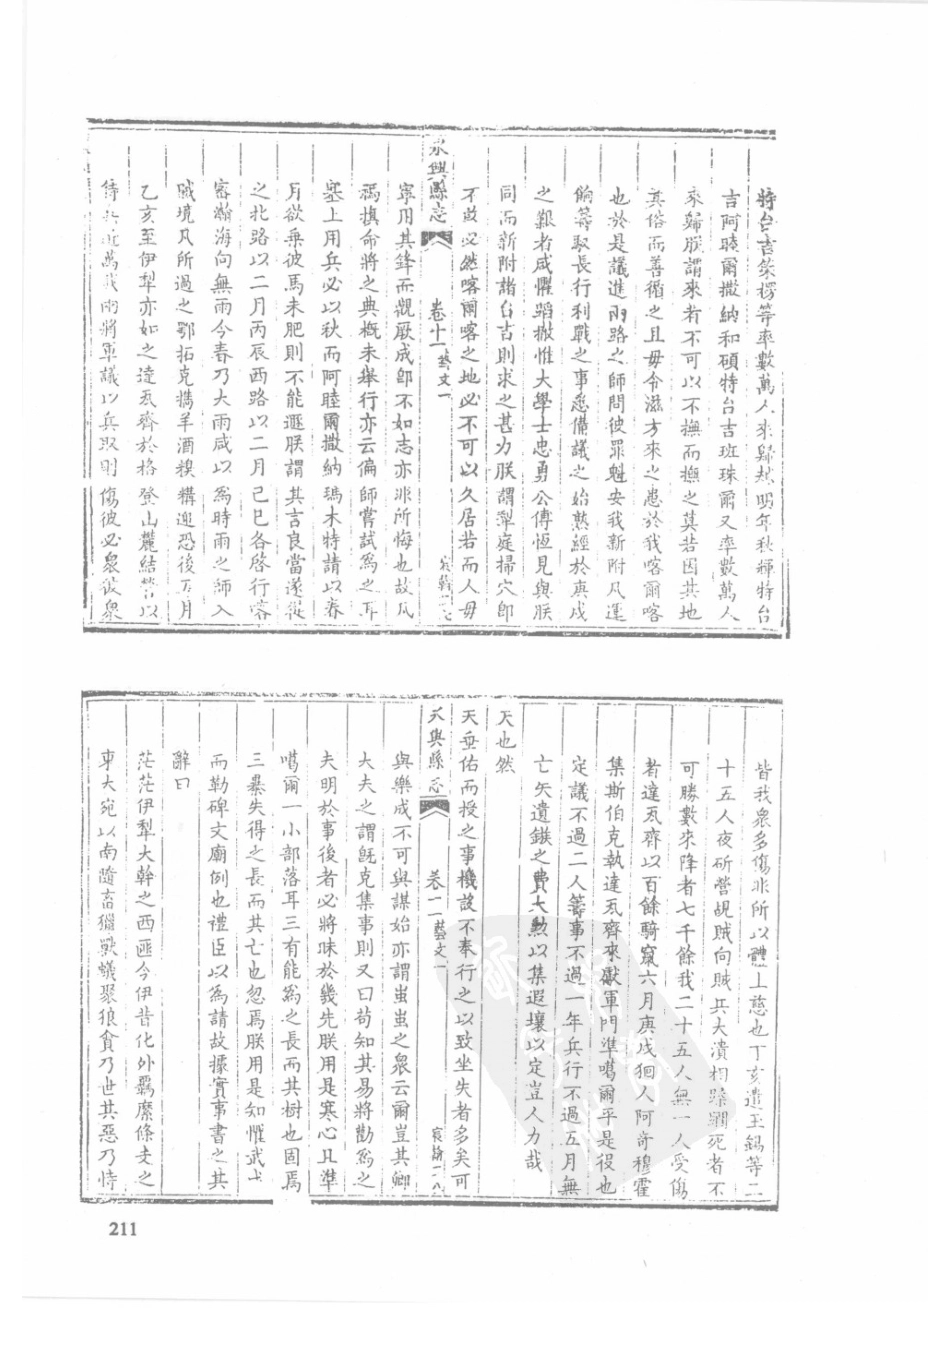 特台吉策楞等率數萬人來歸越明年秋輝特台
吉阿睦爾撒納和碩特台吉班珠爾又率數萬人
來歸朕謂來者不可以不撫而撫之莫若因其地
其俗而善循之且毋令滋方來之患於我喀爾喀
也於是議進兩路之師問彼罪魁安我新附凡運
餉籌馭長行利戰之事悉備議之始熟經於庚戌
之艱者咸懼蹈轍惟大學士忠勇公傅恆見與朕
同而新附諸台吉則求之甚力朕謂犂庭掃穴即
不敢必然喀爾喀之地必不可以久居若而人毋
永興縣志
卷十一藝文一
宸翰
寧用其鋒而觀厥成即不如志亦非所悔也故凡
禡旗命將之典概未舉行亦云偏師嘗試為之耳
塞上用兵必以秋而阿睦爾撒納瑪木特請以春
月欲乘彼馬未肥則不能遯朕謂其言良當遂從
之北路以二月丙辰西路以二月己巳各啓行喀
密瀚海向無雨今春乃大雨咸以為時雨之師入
賊境凡所過之鄂拓克攜羊酒糗糒迎恐後五月
乙亥至伊犁亦如之達瓦齊於格登山麓結營以
待兵近萬我兩將軍議以兵取則傷彼必衆彼衆
皆我衆多傷非所以體上慈也丁亥遣玉錫等二
十五人夜斫營覘賊向賊兵大潰相蹂躪死者不
可勝數來降者七千餘我二十五人無一人受傷
者達瓦齊以百餘騎竄六月庚戌徊人阿奇穆霍
集斯伯克執達瓦齊來獻軍門準噶爾平是役也
定議不過二人籌事不過一年兵行不過五月無
亡矢遺鏃之費大勲以集遐壤以定豈人力哉
天也然
天垂佑而授之事機設不奉行之以致坐失者多矣可
永興縣志
卷十一藝文一
宸翰二八
與樂成不可與謀始亦謂蚩蚩之衆云爾豈其卿
大夫之謂既克集事則又曰苟知其易將勸為之
夫明於事後者必將昧於幾先朕用是寒心且準
噶爾一小部落耳三有能為之長而其樹也固焉
三暴失得之長而其亡也忽焉朕用是知懼武成
而勒碑文廟例也禮臣以為請故據實事書之其
辭曰
茫茫伊犂大幹之西匪今伊昔化外羈縻條支之
東大宛以南隨畜獵獸蟻聚狼貪乃世其惡乃恃
211